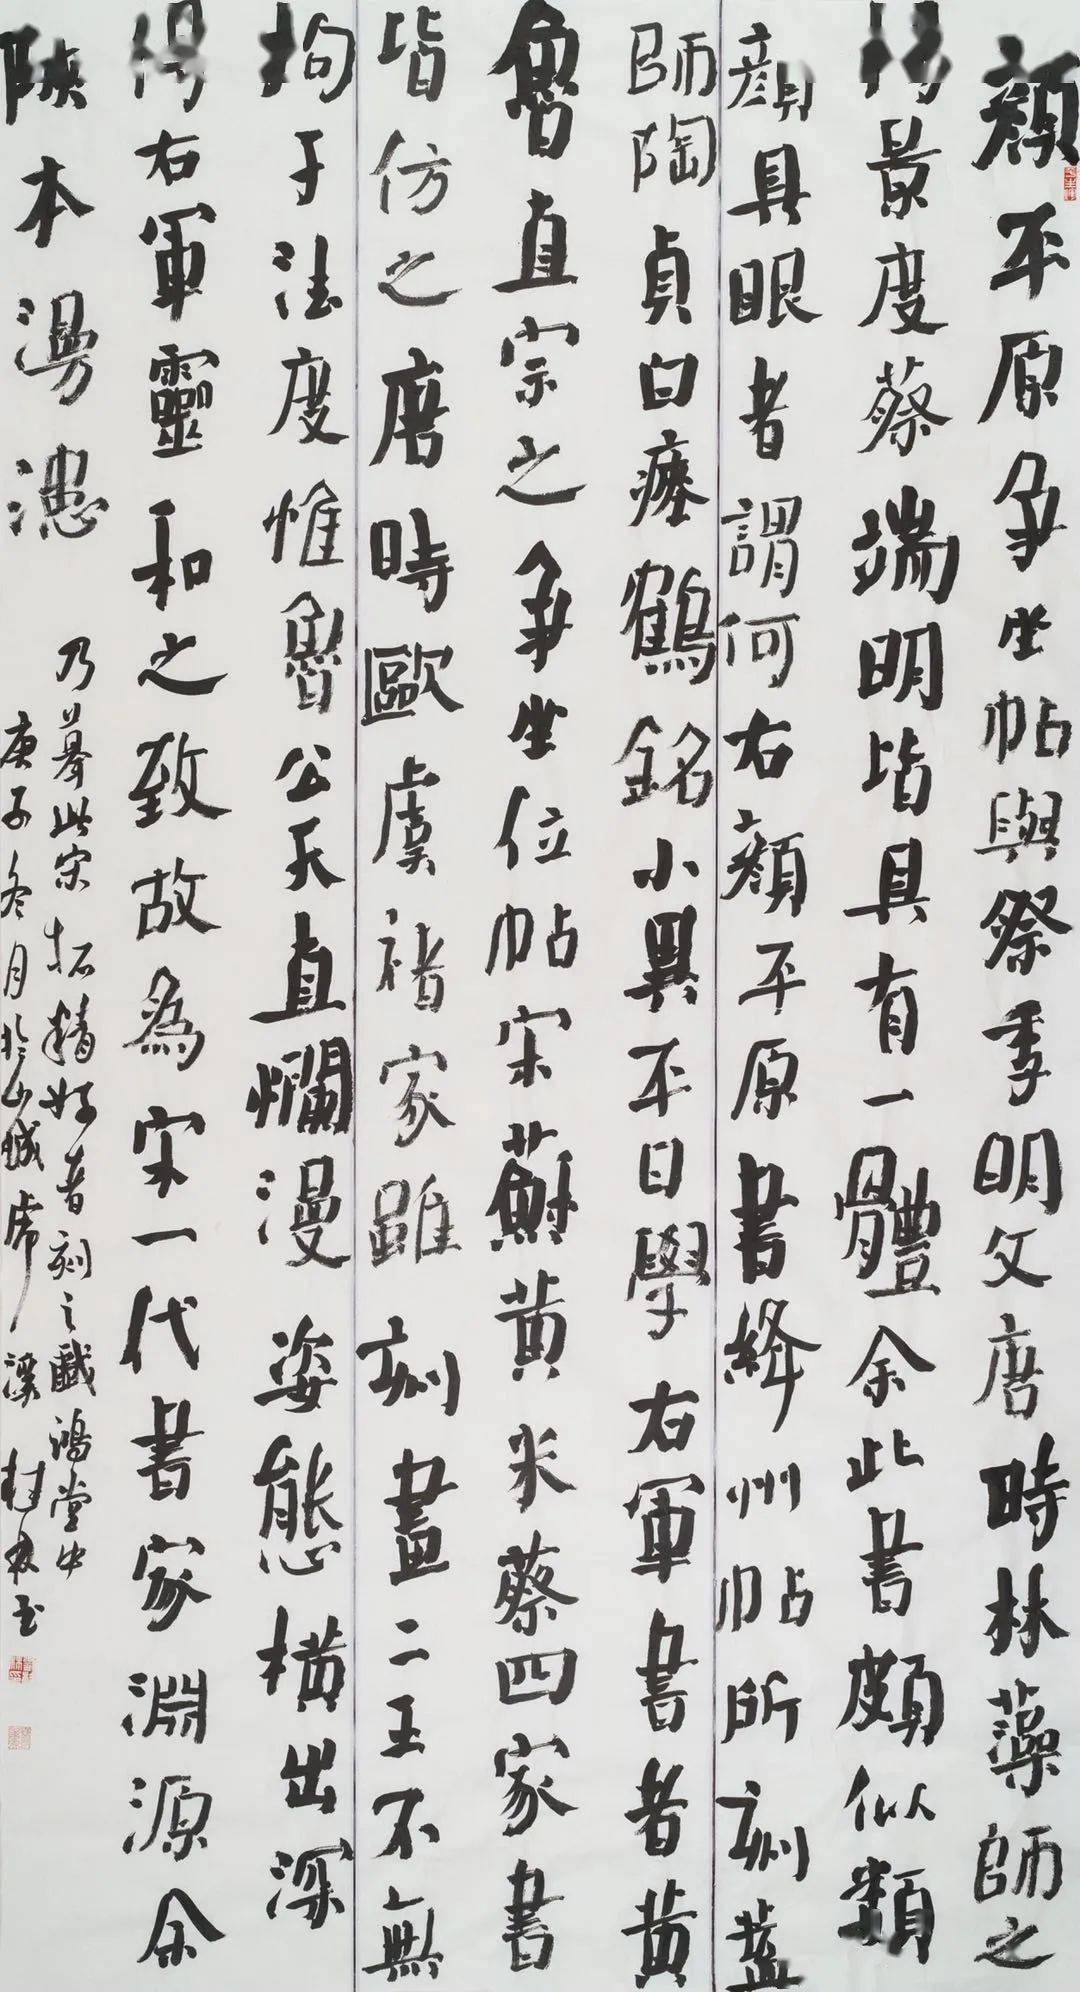 顏平原爭坐帖與祭季明文唐時林藻師之
楊景度蔡端明皆具有一體余此書頗似類
顏具眼者謂何右顏平原書絳州帖所刻蓋
師陶貞白瘞鶴銘小異平日學右軍書者黃
魯直宗之爭坐位帖宋蘇黃米蔡四家書
皆仿之唐時歐虞褚家雖刻畫二王不無
拘于法度惟魯公天真爛漫姿態橫出深
得右軍靈和之致故為宋一代書家淵源余
陝本漫漶
乃摹此宋拓精好者刻之戲鴻堂中
庚子冬月於山城虎溪